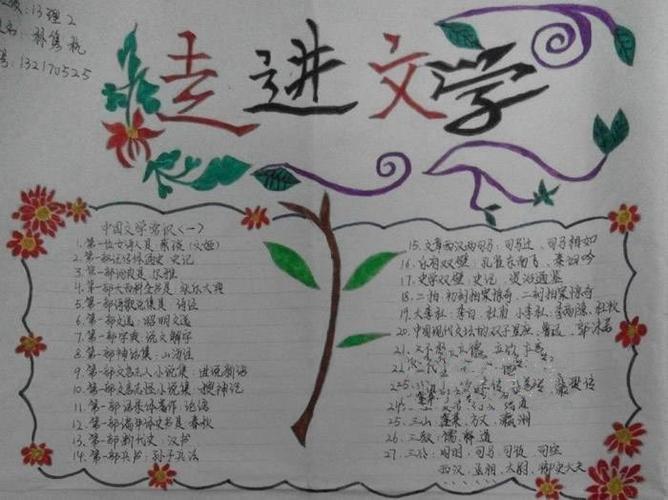 级：13理2
名：孙隽杭
号：132170525
走进文学
中国文学常识（一）
1.第一位女诗人是：蔡琰（文姬）
2.第一部纪传体通史：史记
3.第一部词典是：尔雅
4.第一部大百科全书是：永乐大典
5.第一部诗歌总集是：诗经
6.第一部文选：昭明文选
7.第一部字典：说文解字
8.第一部神话集：山海经
9.第一部文言志人小说集：世说新语
10.第一部文言志怪小说集：搜神记
11.第一部语录体著作：论语
12.第一部编年体史书是：春秋
13.第一部断代史：汉书
14.第一部兵书：孙子兵法
15.文章西汉两司马：司马迁、司马相如
16.乐府双壁：孔雀东南飞、秦妇吟
17.史学双壁：史记、资治通鉴
18.二拍：初刻拍案惊奇、二刻拍案惊奇
19.大李杜：李白、杜甫 小李杜：李商隐、杜牧
20.中国现代文坛的双子星座：鲁迅、郭沫若
21.
22.
25.
24.
25.三山：蓬莱、方丈、瀛洲
26.三教：儒、释、道
27.三公：周朝：司马、司徒、司空
西汉：丞相、太尉、御史大夫